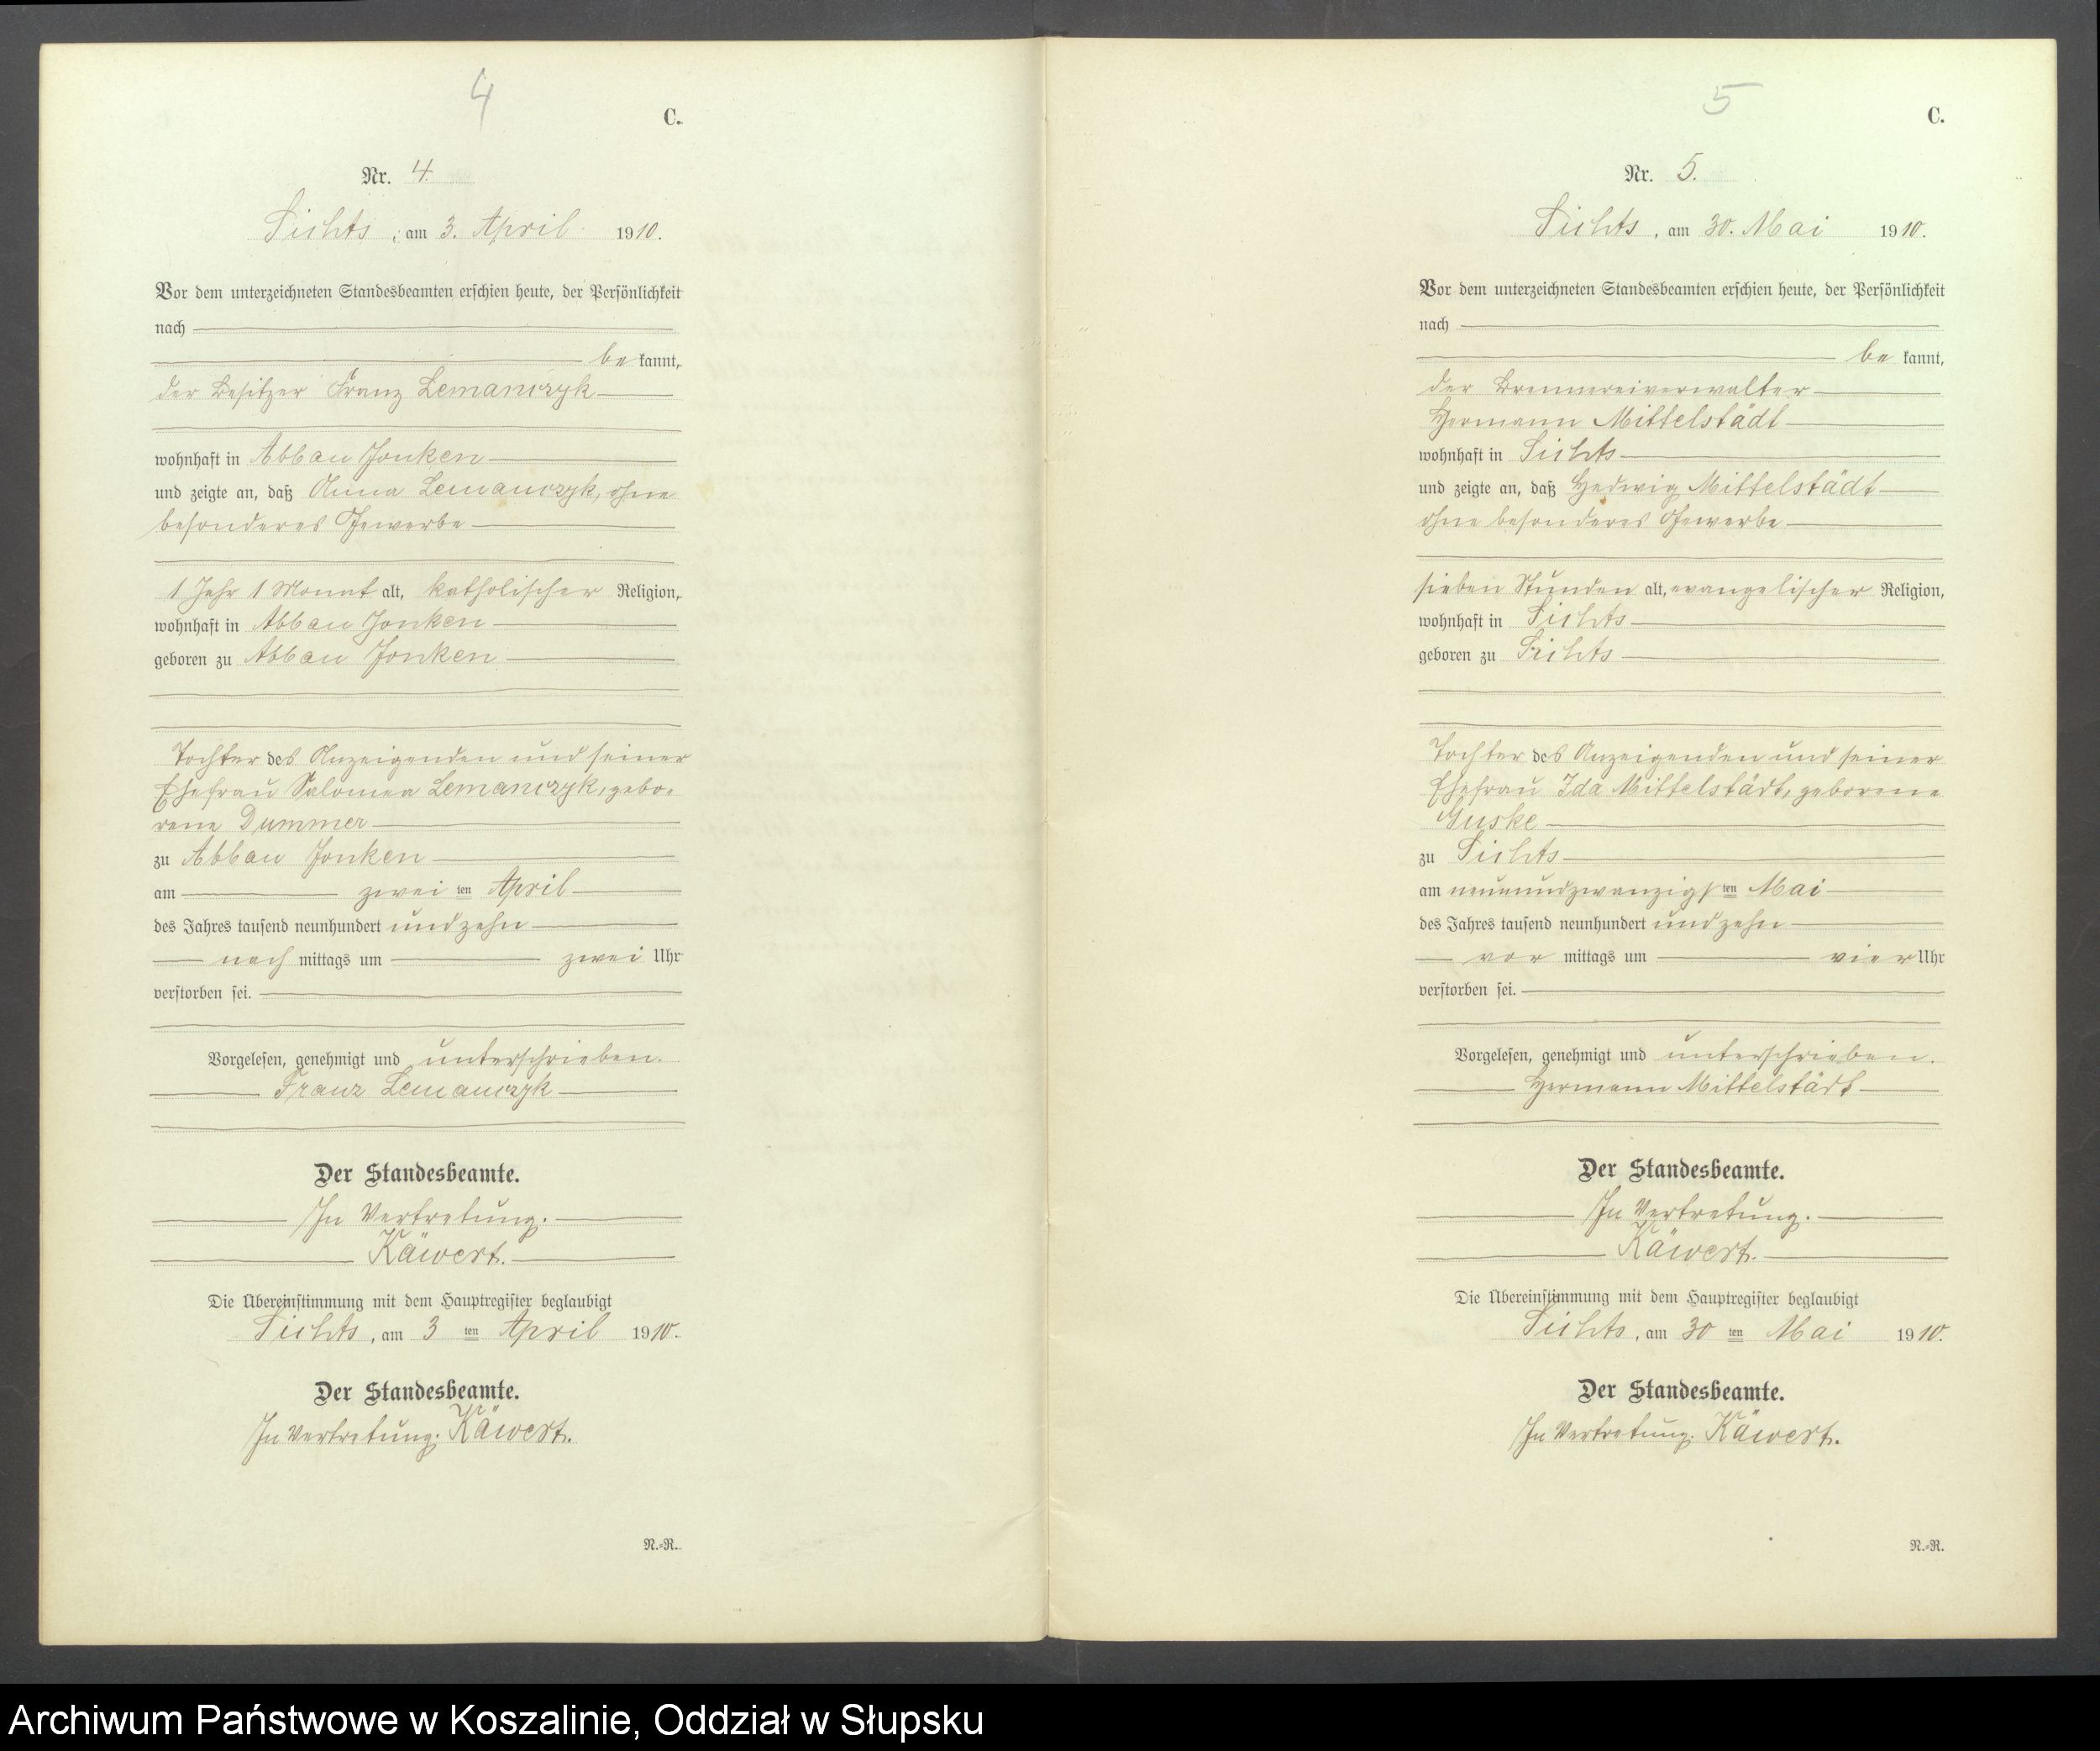 4
C.
Nr. 4.
Lichts, am 3. April 1910.
Vor dem unterzeichneten Standesbeamten erschien heute, der Persönlichkeit
nach
be kannt,
der Besitzer Franz Lemanczyk
wohnhaft in Abbau Jonken
und zeigte an, daß Anna Lemanczyk, ohne
besonderes Gewerbe
1 Jahr 1 Monat alt, katholischer Religion,
wohnhaft in Abbau Jonken
geboren zu Abbau Jonken
Tochter des Anzeigenden und seiner
Ehefrau Salomea Lemanczyk, gebo-
rene Dummer
zu Abbau Jonken
am zwei ten April
des Jahres tausend neunhundert und zehn
nach mittags um zwei Uhr
verstorben sei.
Vorgelesen, genehmigt und unterschrieben.
Franz Lemanczyk
Der Standesbeamte.
In Vertretung.
Käwert.
Die Übereinstimmung mit dem Hauptregister beglaubigt
Lichts, am 3 ten April 1910.
Der Standesbeamte.
In Vertretung: Käwert.
N.-R.
5
C.
Nr. 5.
Lichts, am 30. Mai 1910.
Vor dem unterzeichneten Standesbeamten erschien heute, der Persönlichkeit
nach
be kannt,
der Brennereiverwalter
Hermann Mittelstädt
wohnhaft in Lichts
und zeigte an, daß Hedwig Mittelstädt
ohne besonderes Gewerbe
sieben Stunden alt, evangelischer Religion,
wohnhaft in Lichts
geboren zu Lichts
Tochter des Anzeigenden und seiner
Ehefrau Ida Mittelstädt, geborene
Guske
zu Lichts
am neunundzwanzigs ten Mai
des Jahres tausend neunhundert und zehn
vor mittags um vier Uhr
verstorben sei.
Vorgelesen, genehmigt und unterschrieben.
Hermann Mittelstädt
Der Standesbeamte.
In Vertretung.
Käwert.
Die Übereinstimmung mit dem Hauptregister beglaubigt
Lichts, am 30 ten Mai 1910.
Der Standesbeamte.
In Vertretung: Käwert.
N.-R.
Archiwum Państwowe w Koszalinie, Oddział w Słupsku